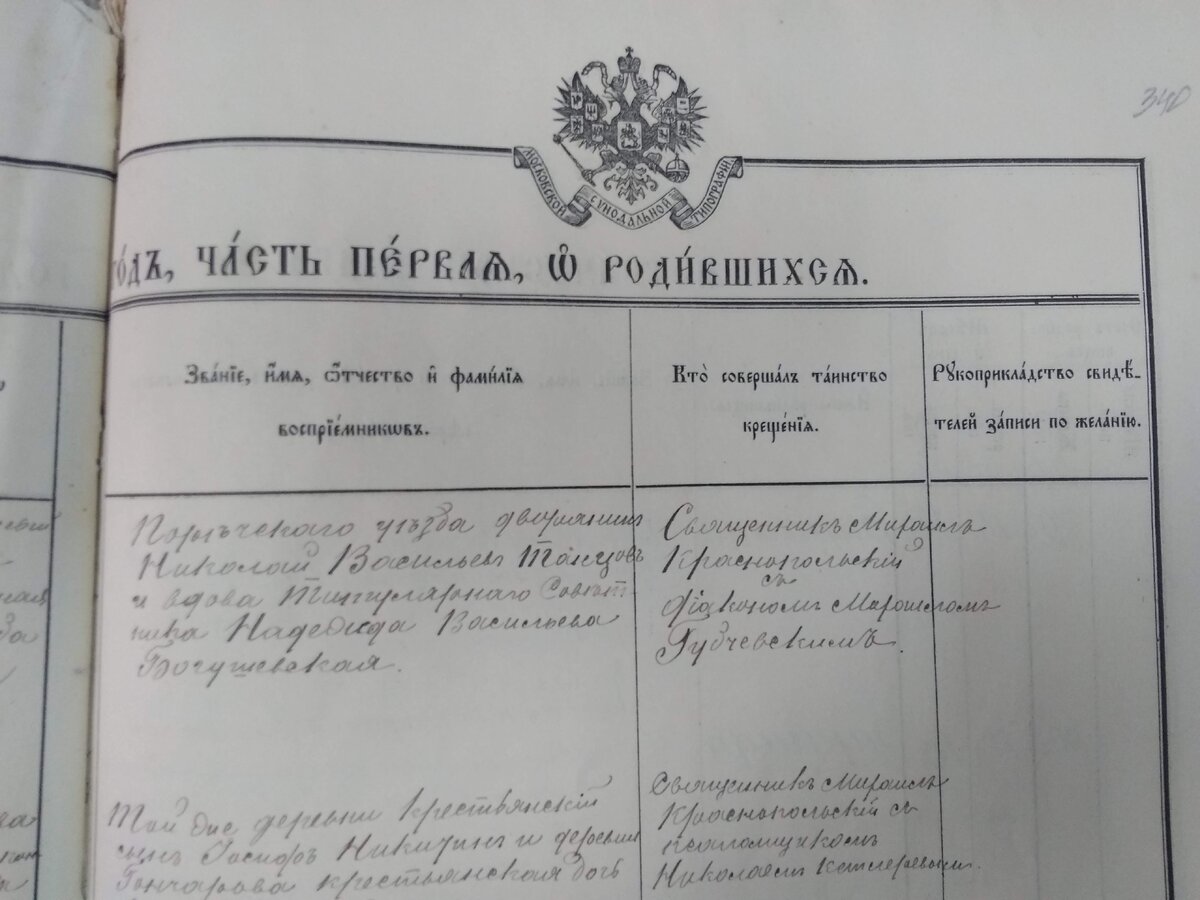 340
МОСКОВСКОЙ СУНОДАЛЬНОЙ ТИПОГРАФІИ
го́дъ, ча́сть пе́рваѧ, ѡ҆ роди́вшихсѧ.
Зва́нїе, и҆́мѧ, ѻ҆́тчество и҆ фами́лїѧ
воспрїе́мникѡвъ.
Кто̀ совершалъ та́инство
креще́нїѧ.
Рꙋкоприкла́дство свидѣ́-
телей за́писи по жела́нїю.
Порѣчскаго уѣзда дворянинъ
Николай Васильев Танцовъ
и вдова Титулярнаго Совѣт-
ника Надежда Васильева
Богушевская.
Священникъ Михаилъ
Краснопольскій
съ
діакономъ
Губчевскимъ.
Той же деревни крестьянскій
сынъ Никитин и деревни
Гончарова крестьянская дочь
Священникъ Михаилъ
Краснопольскій съ
псаломщикомъ
Николаемъ